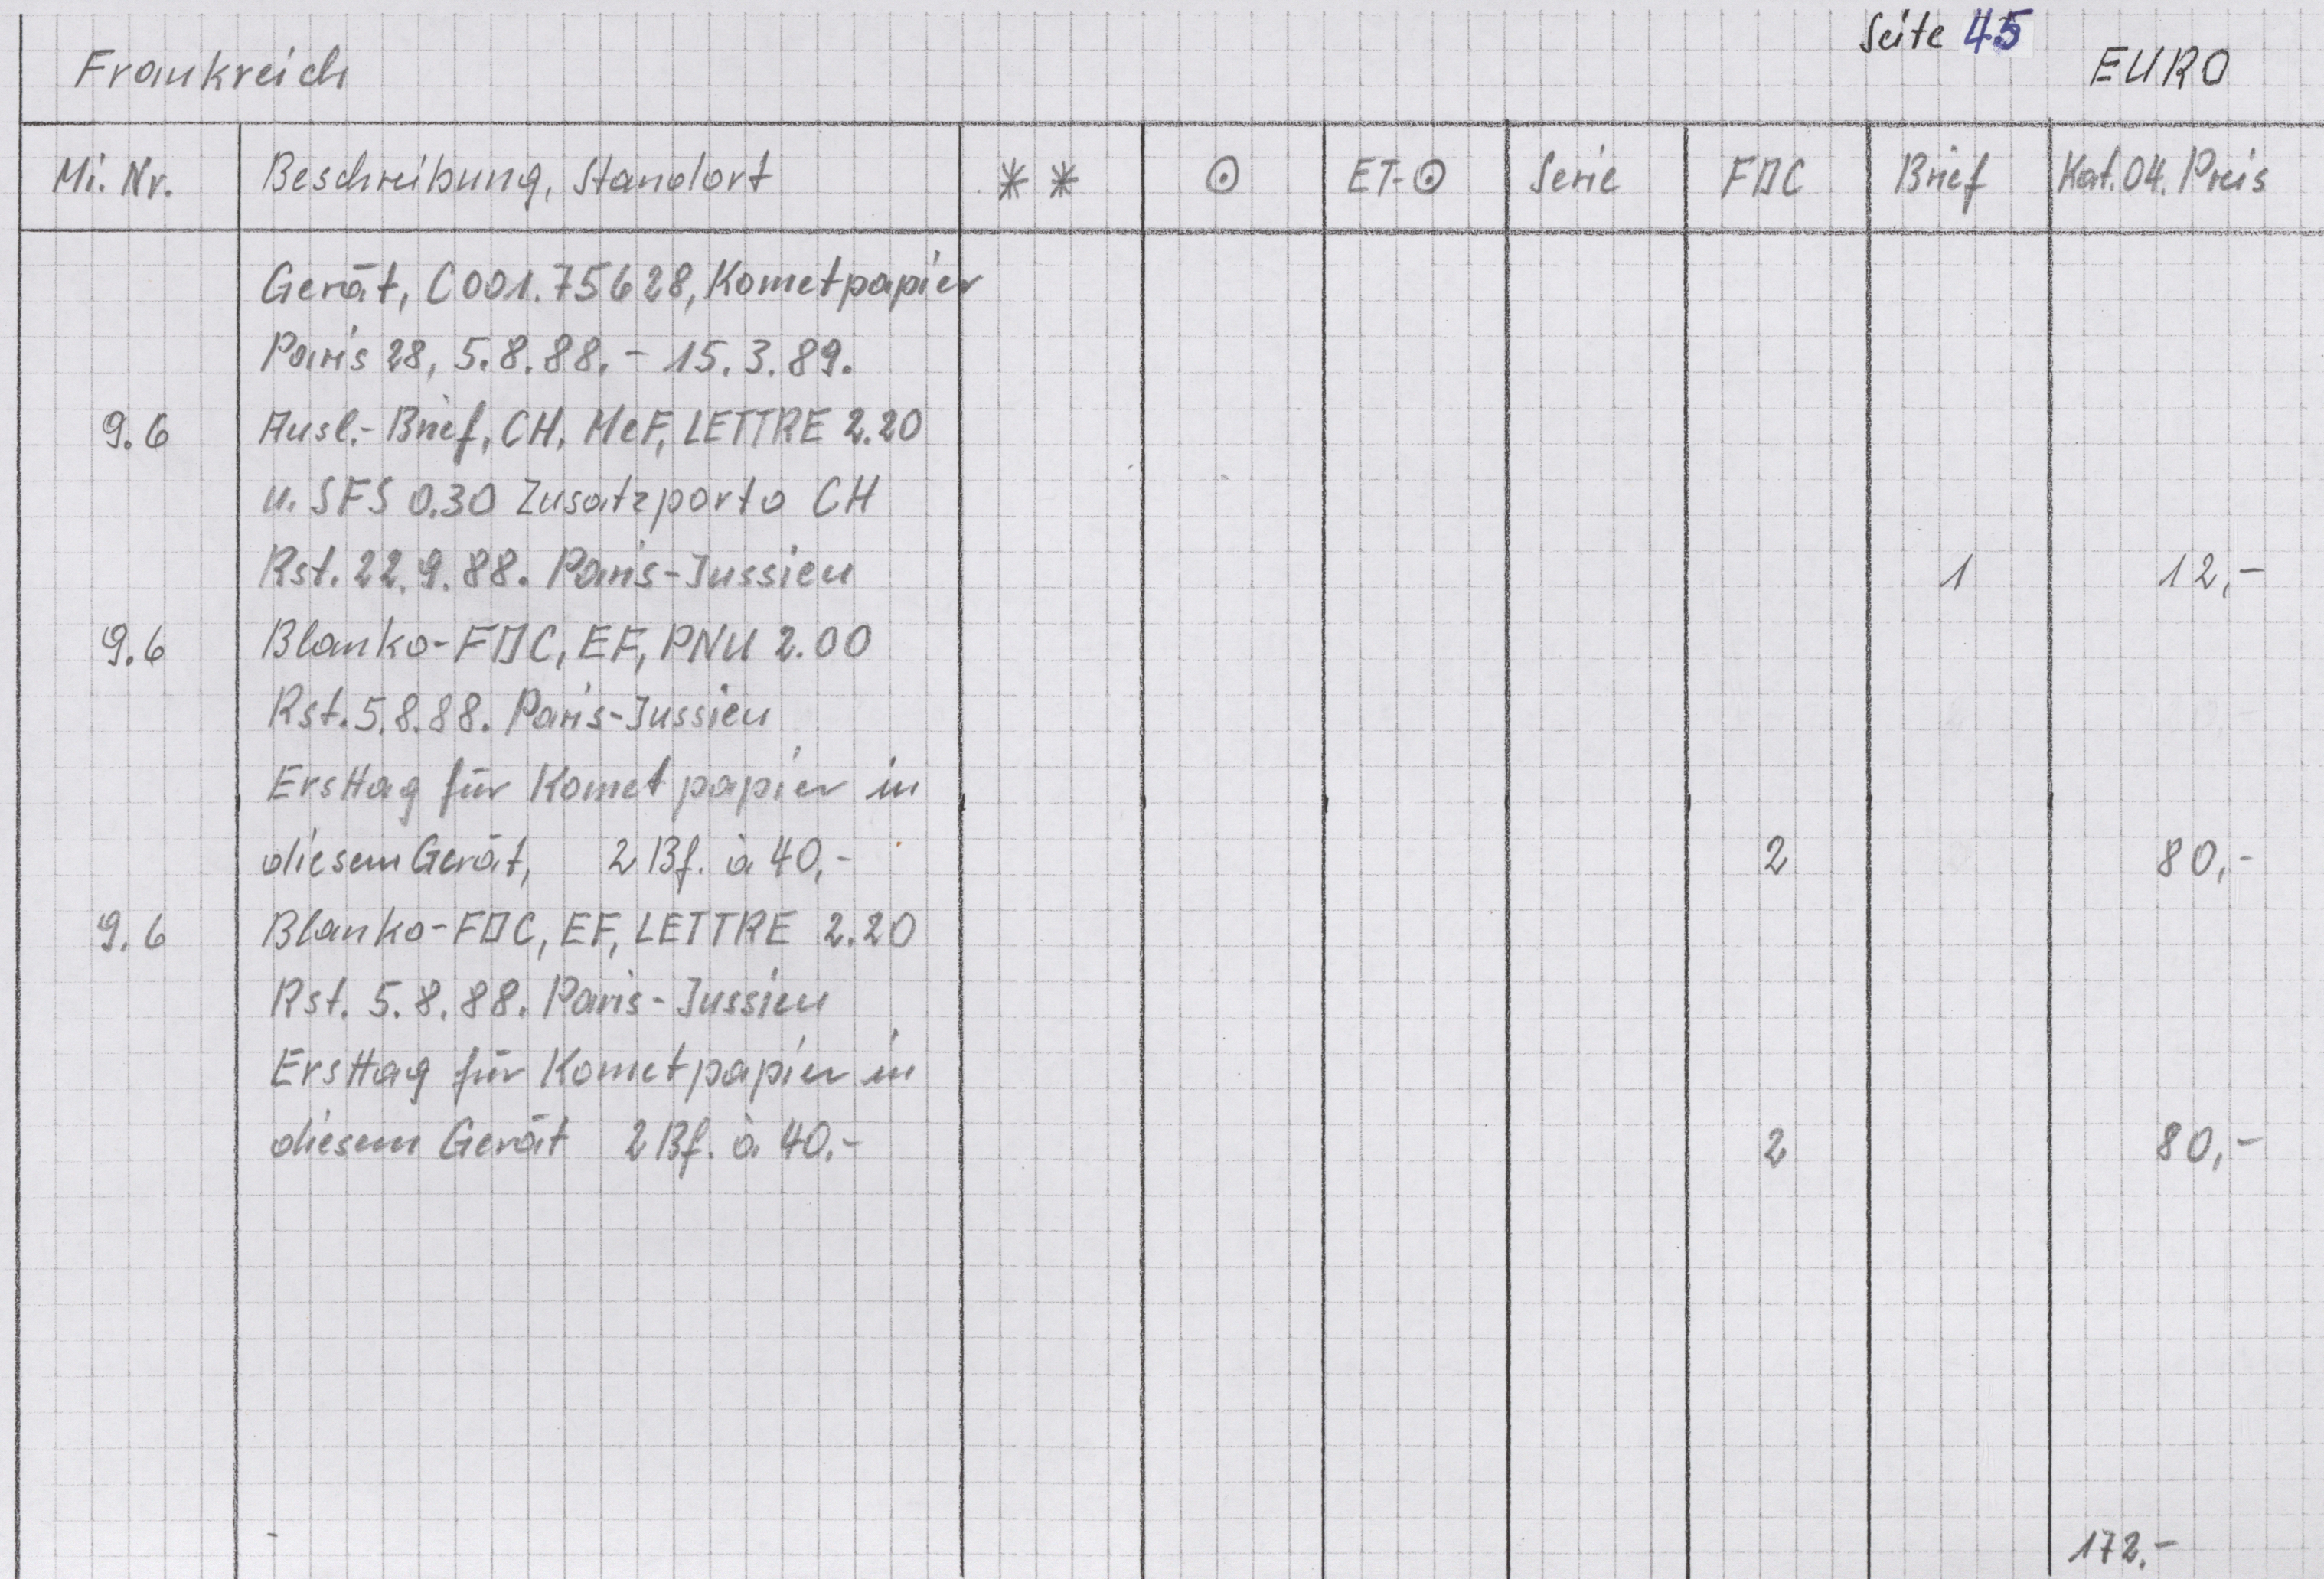 Seite 45
Frankreich EURO
Mi. Nr. Beschreibung, Standort ** ⊙ ET-⊙ Serie FDC Brief Kat.04. Preis
Gerät, C001.75628, Kometpapier
Paris 28, 5.8.88. - 15.3.89.
9.6 Ausl.- Brief, CH, MeF, LETTRE 2.20
u. SFS 0.30 Zusatzporto CH
Rst. 22.9.88. Paris-Jussieu 1 12,-
9.6 Blanko-FDC, EF, PNU 2.00
Rst. 5.8.88. Paris-Jussieu
Ersttag für Kometpapier in
diesem Gerät, 2 Bf. à 40,- 2 80,-
9.6 Blanko-FDC, EF, LETTRE 2.20
Rst. 5.8.88. Paris-Jussieu
Ersttag für Kometpapier in
diesem Gerät 2 Bf. à 40,- 2 80,-
172.-